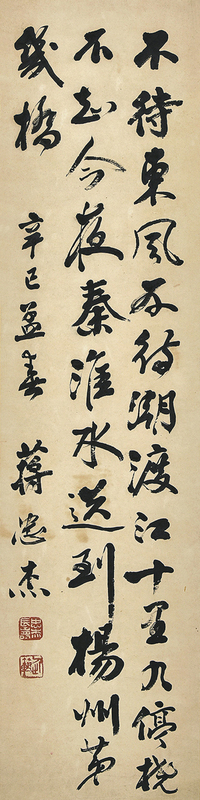 不待東風不待潮渡江十里九停橈
不知今夜秦淮水送到楊州第
幾橋 辛巳孟春 蔣忠杰